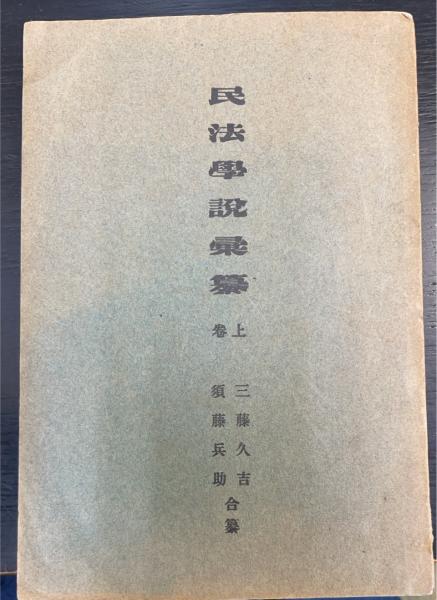 民法學說彙纂
上卷
三藤久吉
須藤兵助
合纂